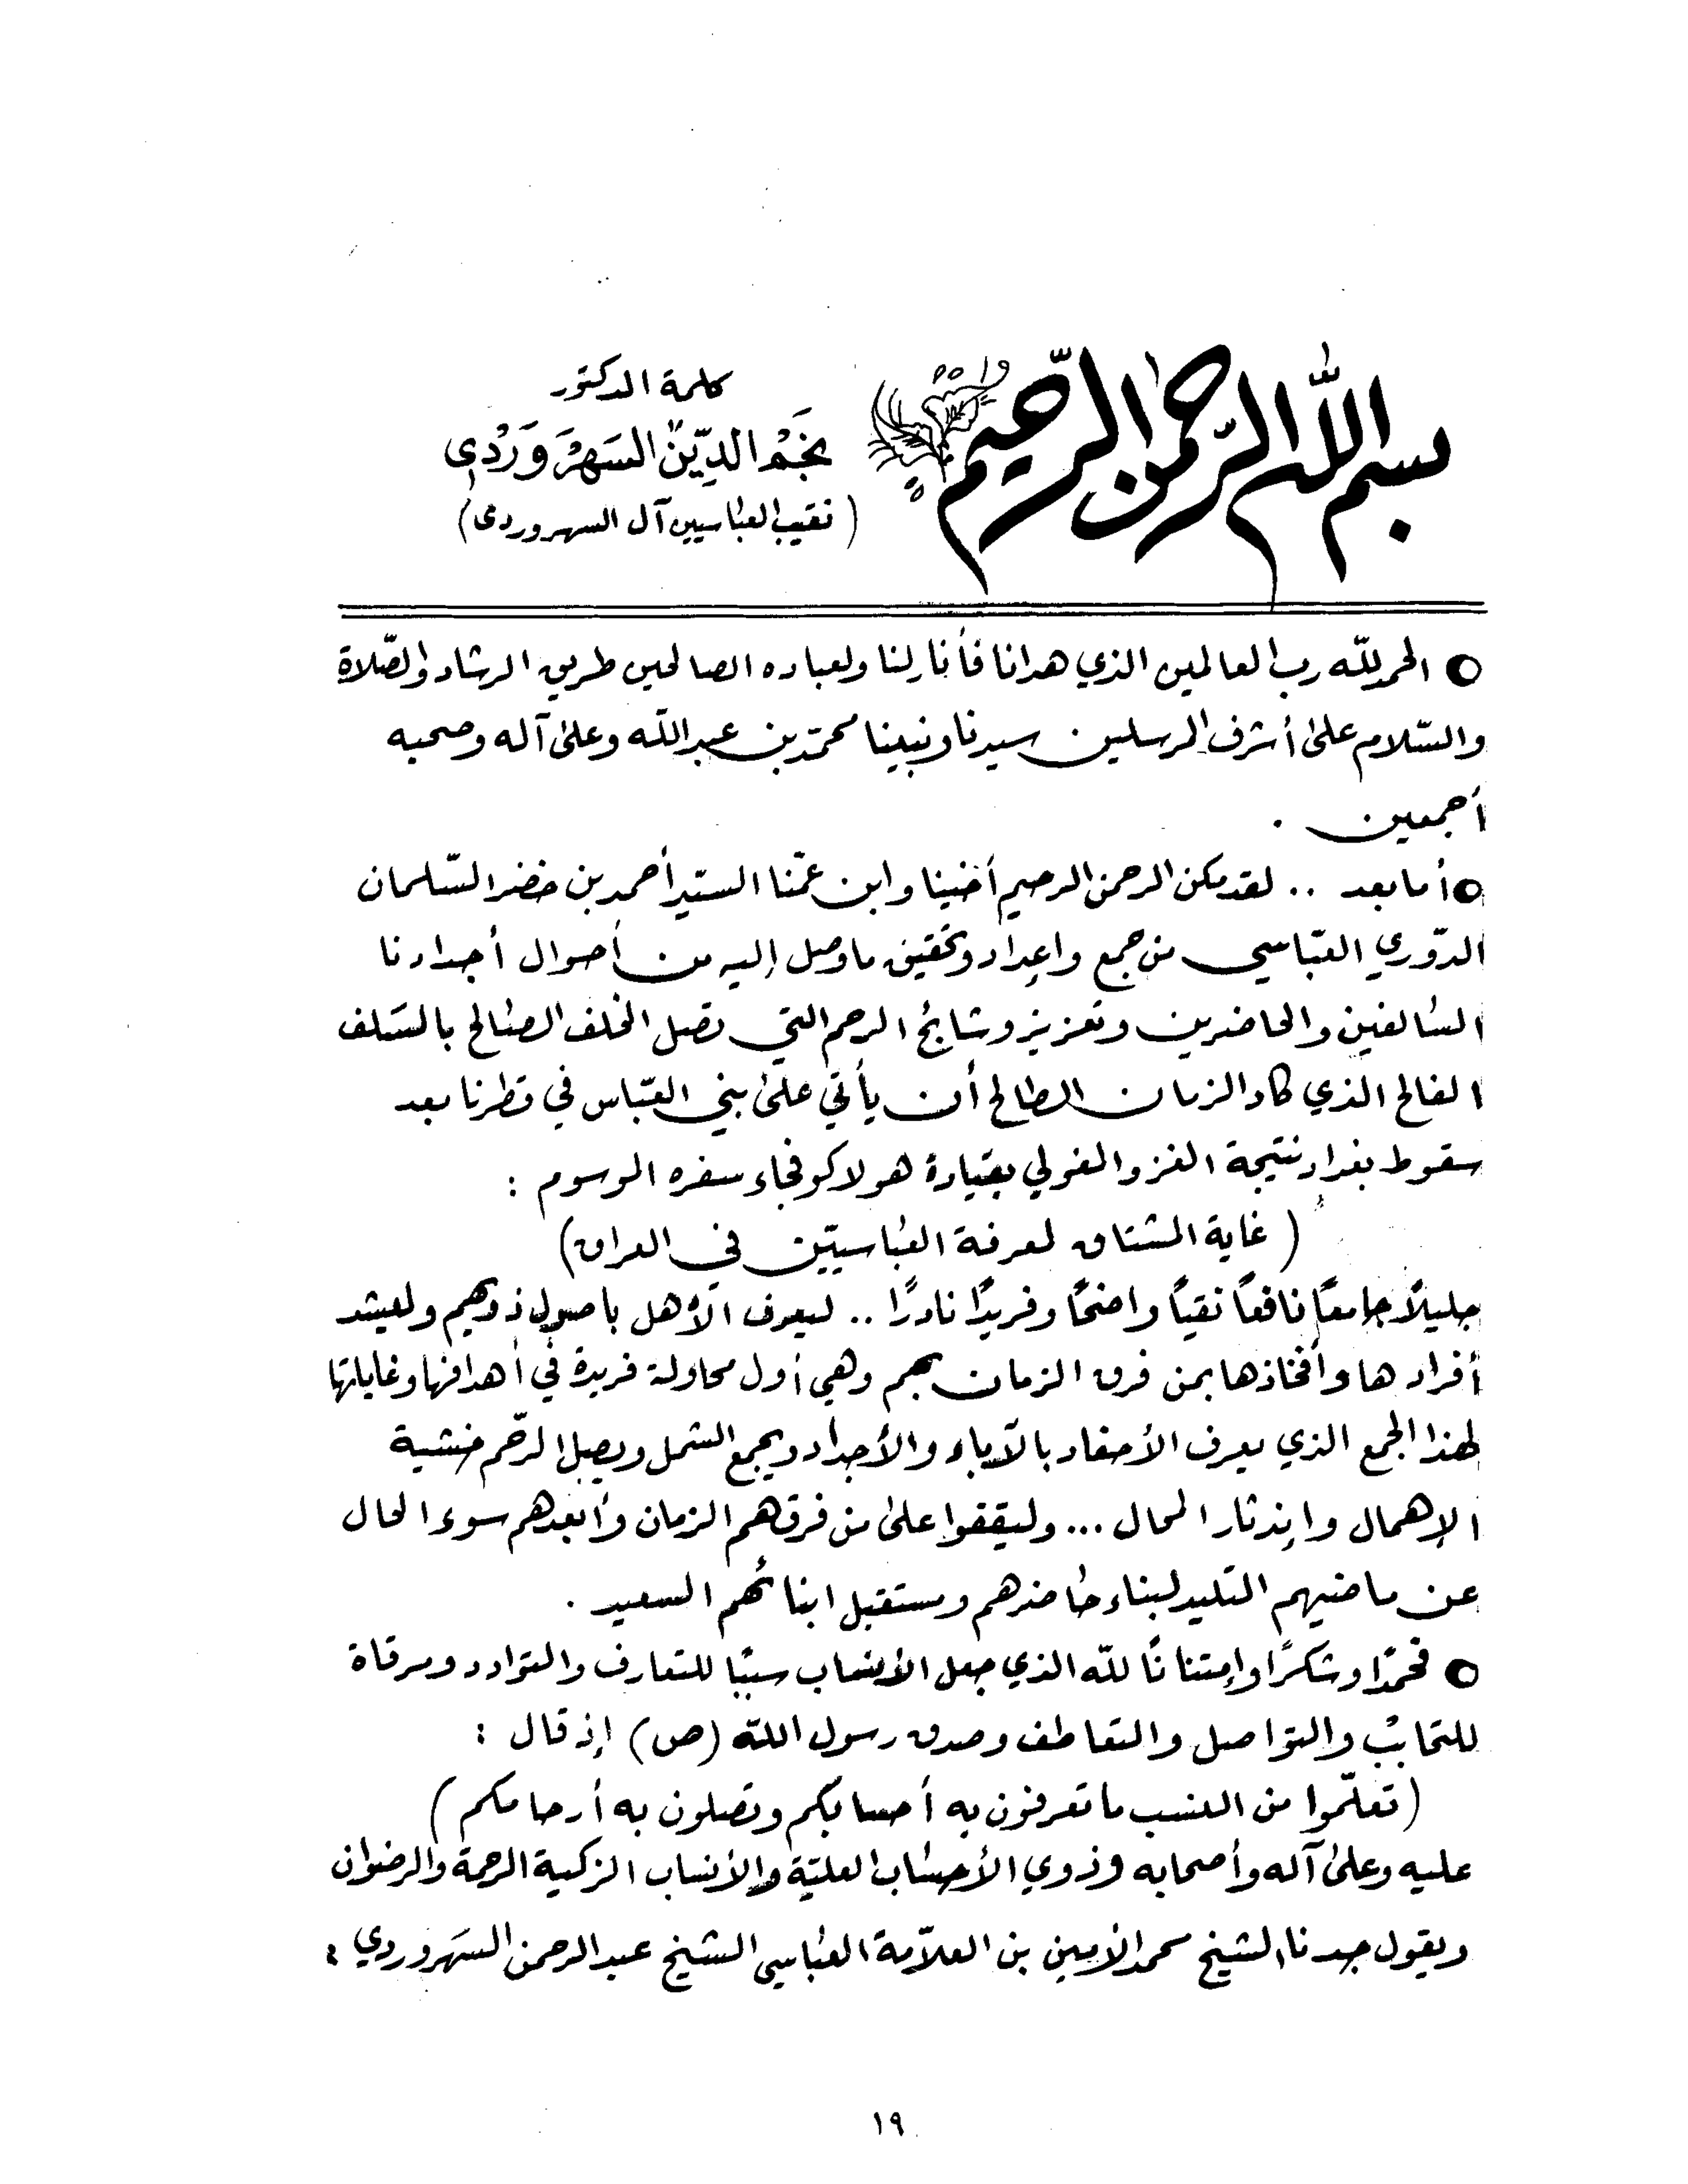 بسم الله الرحمن الرحيم
كلمة الدكتور
نجم الدين السهروردي
(نقيب العباسيين آل السهروردي)
○ الحمد لله رب العالمين الذي هدانا فأنار لنا ولعباده الصالحين طريق الرشاد والصّلاة
والسّلام على أشرف المرسلين سيدنا ونبينا محمّد بن عبد الله وعلى آله وصحبه
أجمعين .
○ أما بعد .. لقد مكن الرحمن الرحيم أخينا وابن عمّنا السيد أحمد بن خضر السّلمان
الدّوري العبّاسي من جمع وإعداد وتحقيق ما وصل إليه من أحوال أجدادنا
السالفين والحاضرين وتعزيز وشائج الرحم التي تصل الخلف الصالح بالسَلف
الفالح الذي كاد الزمان الطالح أن يأتي على بني العبّاس في قطرنا بعد
سقوط بغداد نتيجة الغزو المغولي بقيادة هولاكو فجاء سفره الموسوم :
( غاية المشتاق لمعرفة العباسيّين في العراق)
جليلاً جامعاً نافعاً نقياً واضحًا وفريدًا نادرًا .. ليعرف الأهل باصول ذويهم وليشد
أفرادها وأفخاذها بمن فرق الزمان بهم وهي أول محاولة فريدة في أهدافها وغاياتها
لهذا الجمع الذي يعرف الأحفاد بالآباء والأجداد ويجمع الشمل ويصل الرّحم خشية
الإهمال وإندثار المحال ... وليقفوا على من فرقهم الزمان وأبعدهم سوء الحال
عن ماضيهم التليد لبناء حاضرهم ومستقبل ابنائهم السعيد .
○ فحمدًا وشكرًا وإمتنانًا للّه الذي جعل الأنساب سببًا للتعارف والتوادد ومرقاة
للتحابب والتواصل والتعاطف وصدق رسول اللّه (ص) إذ قال :
(تعلّموا من النسب ما تعرفون به أحسابكم وتصلون به أرحامكم )
عليه وعلى آله وأصحابه وذوي الأحساب العليّة والأنساب الزكية الرحمة والرضوان
ويقول جدنا الشيخ محمد الأمين بن العلاّمة العباسي الشيخ عبد الرحمن السَهروردي :
١٩